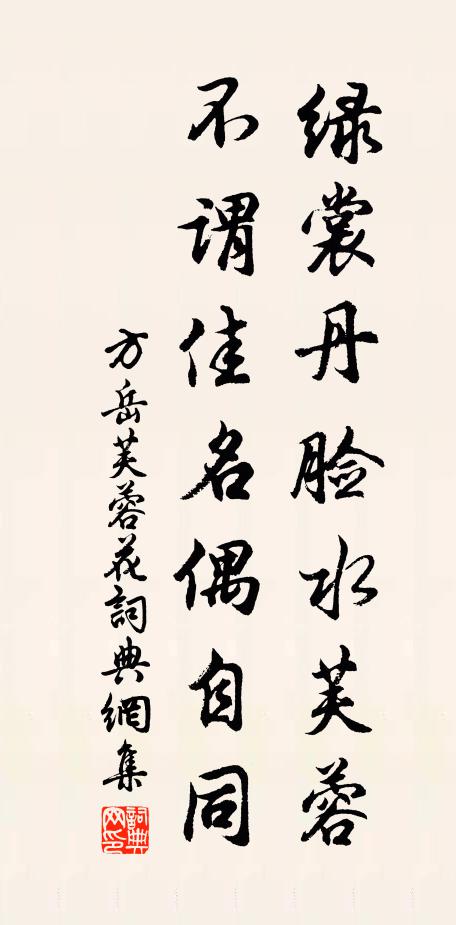 绿裳丹脸水芙蓉
不谓佳名偶自同
方岳芙蓉花詞典網集
詞典网印